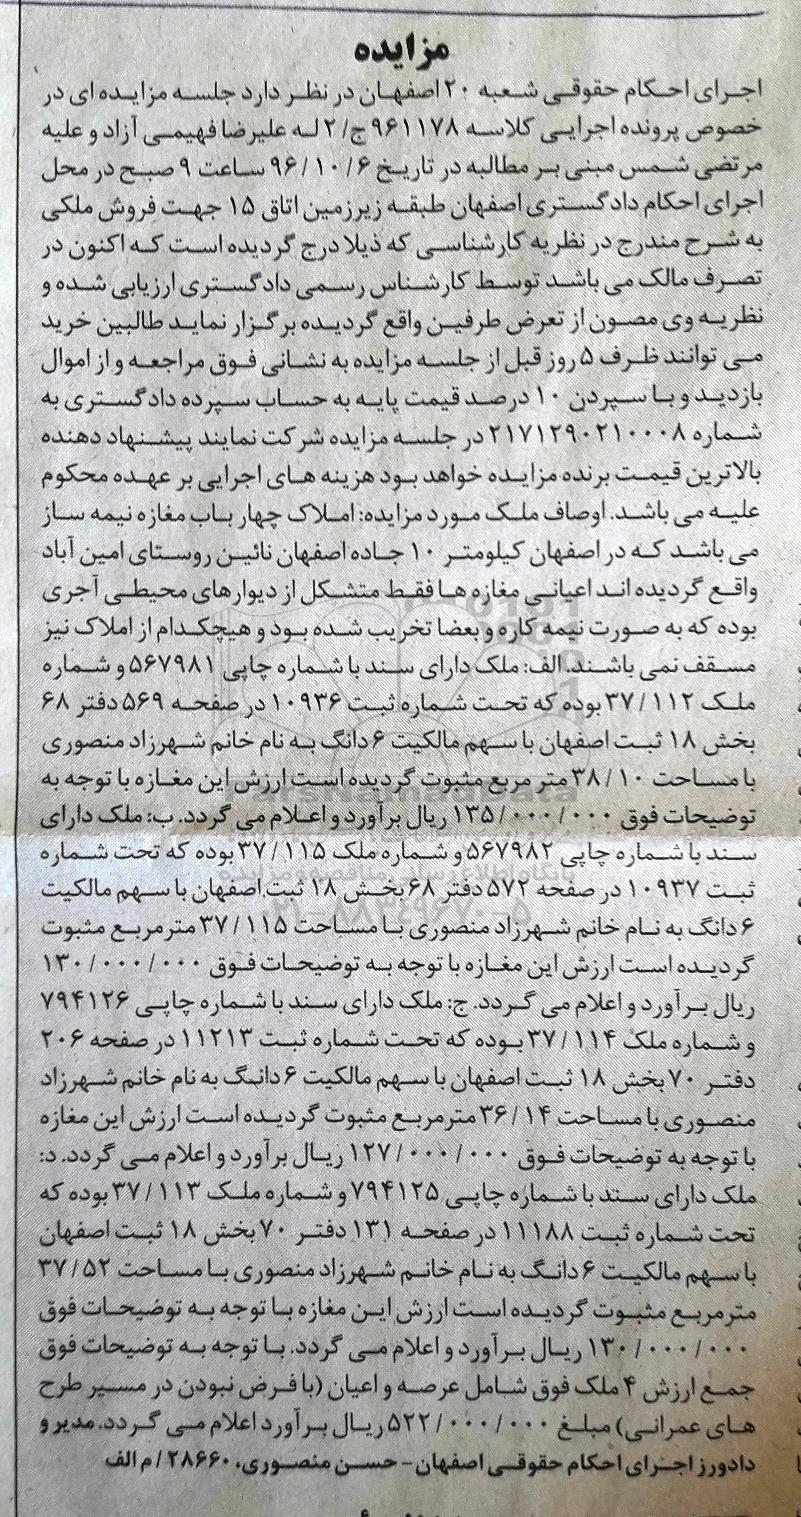 مزایده
اجرای احکام حقوقی شعبه ۲۰ اصفهان در نظر دارد جلسه مزایده ای در
خصوص پرونده اجرایی کلاسه ۹۶۱۱۷۸ ج/۲ له علیرضا فهیمی آزاد و علیه
مرتضی شمس مبنی بر مطالبه در تاریخ ۹۶/۱۰/۶ ساعت ۹ صبح در محل
اجرای احکام دادگستری اصفهان طبقه زیرزمین اتاق ۱۵ جهت فروش ملکی
به شرح مندرج در نظریه کارشناسی که ذیلا درج گردیده است که اکنون در
تصرف مالک می باشد توسط کارشناس رسمی دادگستری ارزیابی شده و
نظریه وی مصون از تعرض طرفین واقع گردیده برگزار نماید طالبین خرید
می توانند ظرف ۵ روز قبل از جلسه مزایده به نشانی فوق مراجعه و از اموال
بازدید و با سپردن ۱۰ درصد قیمت پایه به حساب سپرده دادگستری به
شماره ۲۱۷۱۲۹۰۲۱۰۰۰۸ در جلسه مزایده شرکت نمایند پیشنهاد دهنده
بالاترین قیمت برنده مزایده خواهد بود هزینه های اجرایی بر عهده محکوم
علیه می باشد. اوصاف ملک مورد مزایده: املاک چهار باب مغازه نیمه ساز
می باشد که در اصفهان کیلومتر ۱۰ جاده اصفهان نائین روستای امین آباد
واقع گردیده اند اعیانی مغازه ها فقط متشکل از دیوارهای محیطی آجری
بوده که به صورت نیمه کاره و بعضا تخریب شده بود و هیچکدام از املاک نیز
مسقف نمی باشند. الف: ملک دارای سند با شماره چاپی ۵۶۷۹۸۱ و شماره
ملک ۳۷/۱۱۲ بوده که تحت شماره ثبت ۱۰۹۳۶ در صفحه ۵۶۹ دفتر ۶۸
بخش ۱۸ ثبت اصفهان با سهم مالکیت ۶ دانگ به نام خانم شهرزاد منصوری
با مساحت ۳۸/۱۰ متر مربع مثبوت گردیده است ارزش این مغازه با توجه به
توضیحات فوق ۱۳۵/۰۰۰/۰۰۰ ریال برآورد و اعلام می گردد. ب: ملک دارای
سند با شماره چاپی ۵۶۷۹۸۲ و شماره ملک ۳۷/۱۱۵ بوده که تحت شماره
ثبت ۱۰۹۳۷ در صفحه ۵۷۲ دفتر ۶۸ بخش ۱۸ ثبت اصفهان با سهم مالکیت
۶ دانگ به نام خانم شهرزاد منصوری با مساحت ۳۷/۱۱۵ مترمربع مثبوت
گردیده است ارزش این مغازه با توجه به توضیحات فوق ۱۳۰/۰۰۰/۰۰۰
ریال برآورد و اعلام می گردد. ج: ملک دارای سند با شماره چاپی ۷۹۴۱۲۶
و شماره ملک ۳۷/۱۱۴ بوده که تحت شماره ثبت ۱۱۲۱۳ در صفحه ۲۰۶
دفتر ۷۰ بخش ۱۸ ثبت اصفهان با سهم مالکیت ۶ دانگ به نام خانم شهرزاد
منصوری با مساحت ۳۶/۱۴ مترمربع مثبوت گردیده است ارزش این مغازه
با توجه به توضیحات فوق ۱۲۷/۰۰۰/۰۰۰ ریال برآورد و اعلام می گردد. د:
ملک دارای سند با شماره چاپی ۷۹۴۱۲۵ و شماره ملک ۳۷/۱۱۳ بوده که
تحت شماره ثبت ۱۱۱۸۸ در صفحه ۱۳۱ دفتر ۷۰ بخش ۱۸ ثبت اصفهان
با سهم مالکیت ۶ دانگ به نام خانم شهرزاد منصوری با مساحت ۳۷/۵۲
مترمربع مثبوت گردیده است ارزش این مغازه با توجه به توضیحات فوق
۱۳۰/۰۰۰/۰۰۰ ریال برآورد و اعلام می گردد. با توجه به توضیحات فوق
جمع ارزش ۴ ملک فوق شامل عرصه و اعیان (با فرض نبودن در مسیر طرح
های عمرانی) مبلغ ۵۲۲/۰۰۰/۰۰۰ ریال برآورد اعلام می گردد. مدیر و
دادورز اجرای احکام حقوقی اصفهان- حسن منصوری، ۲۸۶۶۰/م الف